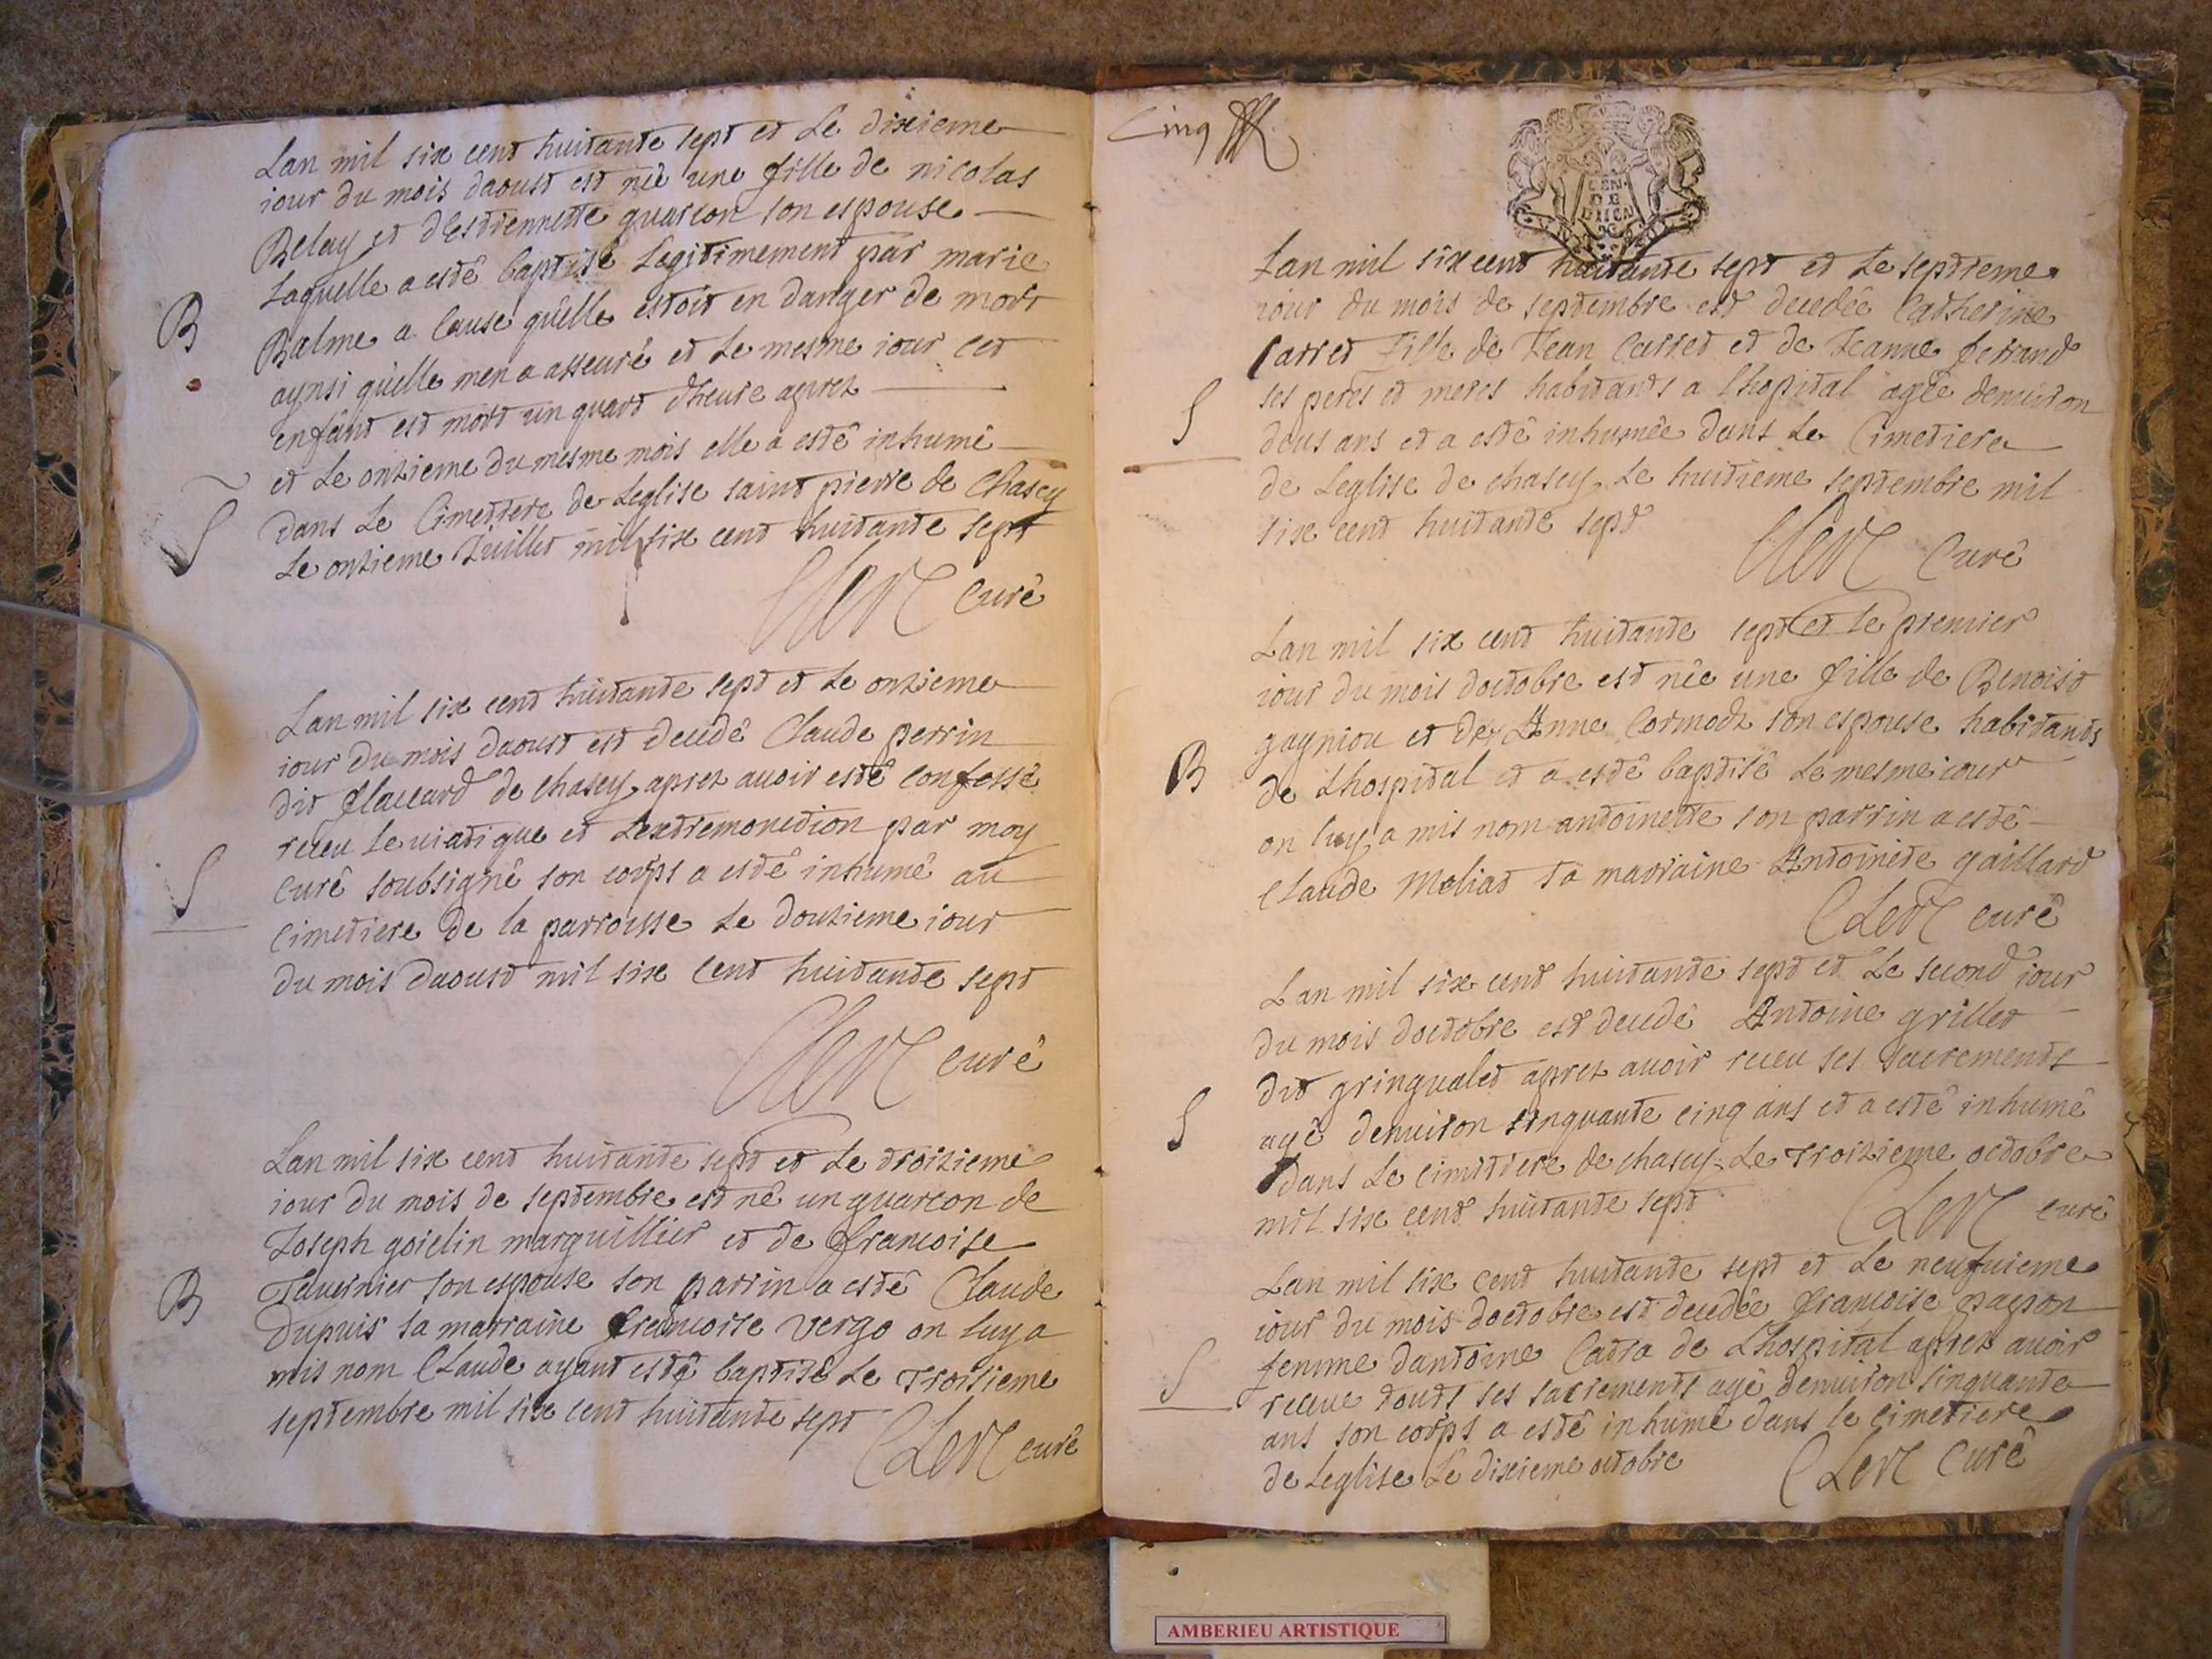 Lan mil six cent huitante sept et Le dixieme
iour du mois daoust est neê une fille de nicolas
Belay et dEstiennette guarcon son espouse
Laquelle a estê baptisê Legitimement par marie
B
Balme a Cause quelle estoit en danger de mort
aynsi quelle men a asseurê et Le mesme iour cet
enfant est mort un quart dheure aprez
et Le onzieme du mesme mois elle a estê inhumê
S
dans Le Cimettere de Leglise saint pierre de Chasey
Le onzieme Juillet mil six cent huitante sept
Clerc Curê
Lan mil six cent huitante sept et Le onzieme
iour du mois daoust est decedê Claude perrin
dit flaccard de chasey aprez avoir estê confessê
receu Le viatique et Lextremonction par moy
S
Curê soubsignê son corps a estê inhumê au
Cimetiere de la parroisse Le douzieme iour
du mois daoust mil six Cent huitante sept
Clerc curê
Lan mil six cent huitante sept et Le troizieme
iour du mois de septembre est nê un guarcon de
Joseph goielin marguillier et de francoise
B
Tavernier son espouse son parrin a estê Claude
Dupuis sa marraine francoise vergo on luy a
mis nom Claude ayant estê baptisê Le Troisieme
septembre mil six cent huitante sept
Clerc curê
Cinq
GEN.
DE
DIION
Lan mil six cent huitante sept et Le septieme
iour du mois de septembre est decedêe Catherine
Carret Fille de Jean Carret et de Jeanne ferrand
ses peres et meres habitants a lhopital agêe denuiron
S
deus ans et a estê inhumêe dans Le Cimetiere
de Leglise de chasey Le huitieme septembre mil
six cent huitante sept
Clerc Curê
Lan mil six cent huitante sept et Le premier
iour du mois doctobre est nêe une fille de Benoist
gagniou et de Anne Cormodz son espouse habitants
B
de Lhospital et a estê baptisê Le mesme iour
on luy a mis nom antoinette son parrin a estê
Claude Meliat sa marraine Antoinete gaillard
Clerc curê
Lan mil six cent huitante sept et Le second iour
du mois doctobre est decedê Antoine grillet
dit gringualet aprez avoir receu ses sacrements
S
agê denuiron sinquante cinq ans et a estê inhumê
dans Le cimittiere de chasey Le Troizieme octobre
mil six cent huitante sept
Clerc curê
Lan mil six cent huitante sept et Le neufuieme
iour du mois doctobre est decedêe francoise pagson
femme dantoine Catra de Lhospital aprez avoir
S
receue touts ses sacrements agê denuiron sinquante
ans son corps a estê inhumê dans le Cimetiere
de Leglise Le dixieme octobre
Clerc Curê
AMBERIEU ARTISTIQUE